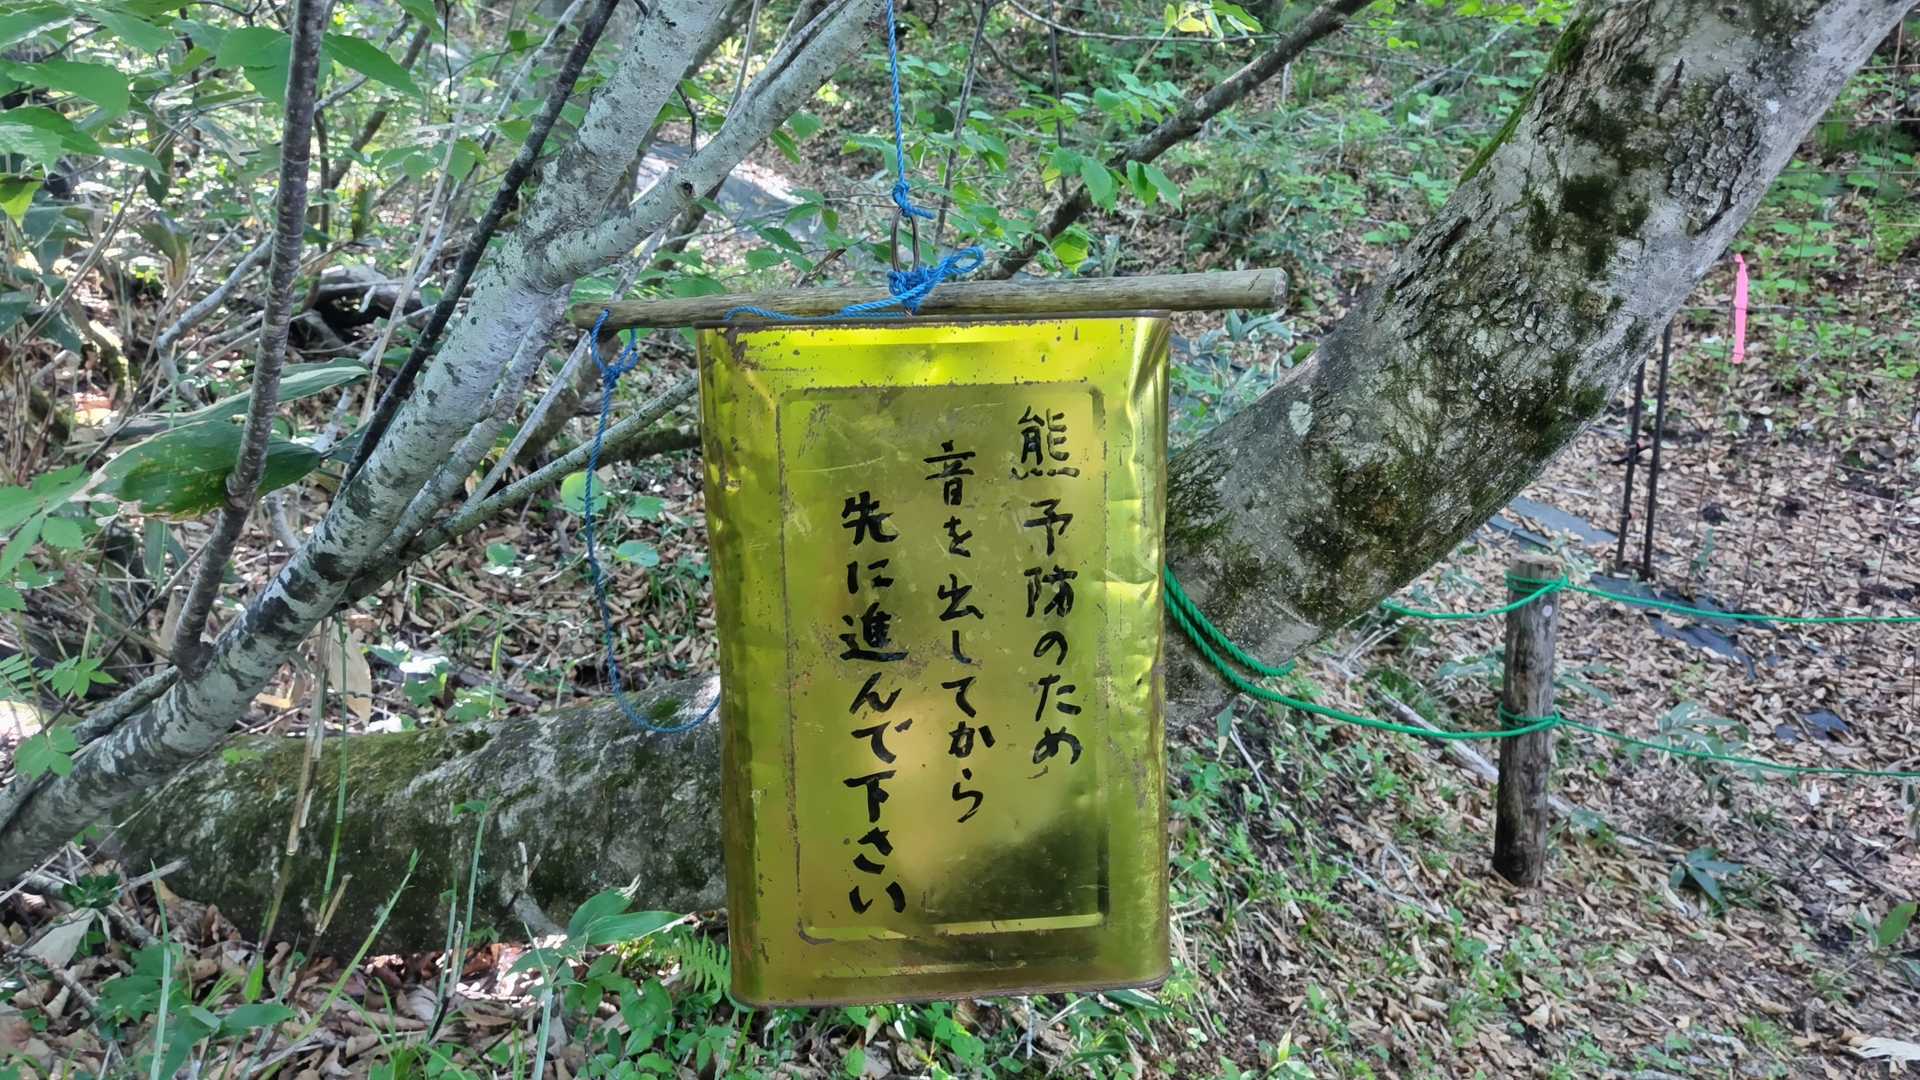 熊予防のため
音を出してから
先に進んで下さい